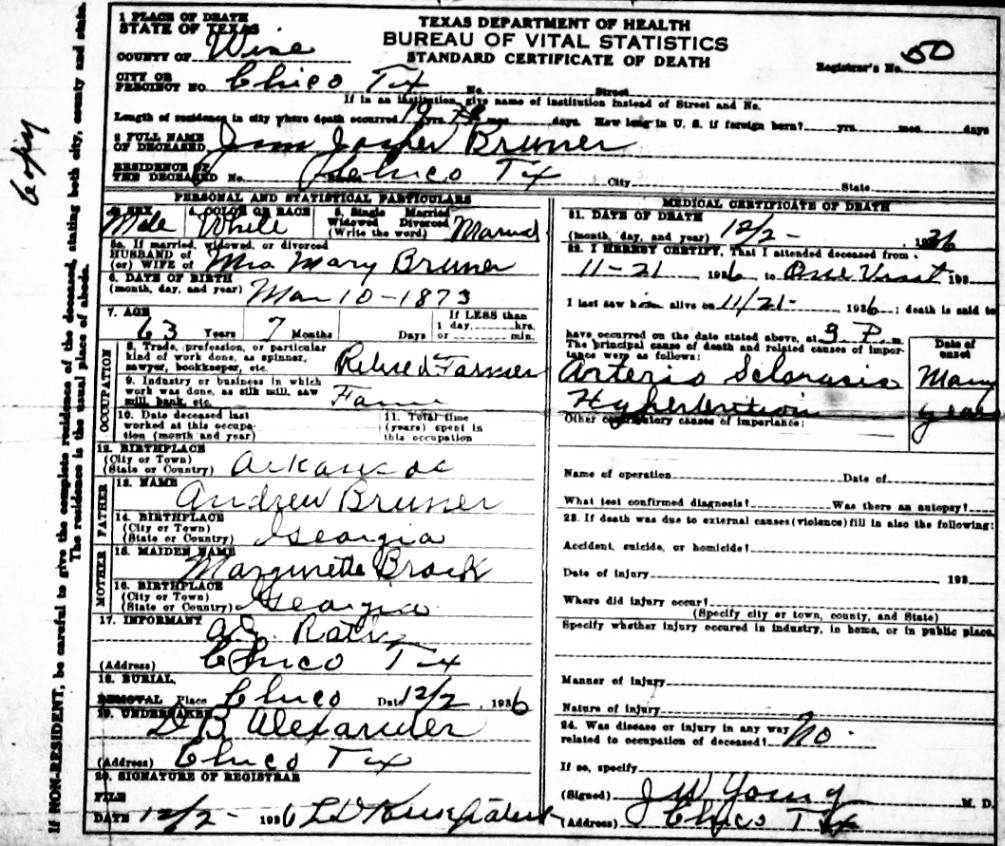 Copy
If NON-RESIDENT, be careful to give the complete residence of the deceased, stating both city, county and state.
The residence is the usual place of abode.
TEXAS DEPARTMENT OF HEALTH
BUREAU OF VITAL STATISTICS
STANDARD CERTIFICATE OF DEATH
Registrar's No. 50
1 PLACE OF DEATH
STATE OF TEXAS
COUNTY OF Wise
CITY OR
PRECINCT NO. Chico Tx No. Street
If in an institution, give name of institution instead of Street and No.
Length of residence in city where death occurred yrs. mos. days. How long in U. S. if foreign born? yrs. mos. days
2 FULL NAME
OF DECEASED Jim Jasper Bruner
RESIDENCE OF
THE DECEASED No. Chico Tx City State
PERSONAL AND STATISTICAL PARTICULARS
3. SEX 4. COLOR OR RACE 5. Single Married
Widowed Divorced
(Write the word)
Male White Married
5a. If married, widowed, or divorced
HUSBAND of
(or) WIFE of Mrs Mary Bruner
6. DATE OF BIRTH
(month, day, and year) Mar 10-1873
7. AGE If LESS than
63 Years 7 Months Days 1 day, hrs.
or min.
OCCUPATION
8. Trade, profession, or particular
kind of work done, as spinner,
sawyer, bookkeeper, etc. Retired Farmer
9. Industry or business in which
work was done, as silk mill, saw
mill, bank, etc. Farm
10. Date deceased last
worked at this occupa-
tion (month and year)
11. Total time
(years) spent in
this occupation
12. BIRTHPLACE
(City or Town)
(State or Country) Arkansas
FATHER
13. NAME Andrew Bruner
14. BIRTHPLACE
(City or Town)
(State or Country) Georgia
MOTHER
15. MAIDEN NAME Margurette Brock
16. BIRTHPLACE
(City or Town)
(State or Country) Georgia
17. INFORMANT
(Address) Chico Tx
18. BURIAL,
REMOVAL Place Chico Date 12/2 1936
19. UNDERTAKER D B Alexander
(Address) Chico Tx
20. SIGNATURE OF REGISTRAR
FILE
DATE 12/2- 1936
MEDICAL CERTIFICATE OF DEATH
21. DATE OF DEATH
(month, day, and year) 12/2- 1936
22. I HEREBY CERTIFY, That I attended deceased from
11-21 1936 to One Visit 193
I last saw him alive on 11/21- 1936; death is said to
have occurred on the date stated above, at 9 P. m
The principal cause of death and related causes of impor-
tance were as follows:
Date of
onset
Arterio Sclorosis Many
Hypertention years
Other contributory causes of importance:
Name of operation Date of
What test confirmed diagnosis? Was there an autopsy?
23. If death was due to external causes (violence) fill in also the following:
Accident, suicide, or homicide?
Date of injury 193
Where did injury occur?
(Specify city or town, county, and State)
Specify whether injury occured in industry, in home, or in public place.
Manner of injury
Nature of injury
24. Was disease or injury in any way
related to occupation of deceased? No.
If so, specify
(Signed) J W Young M. D.
(Address) Chico Tx